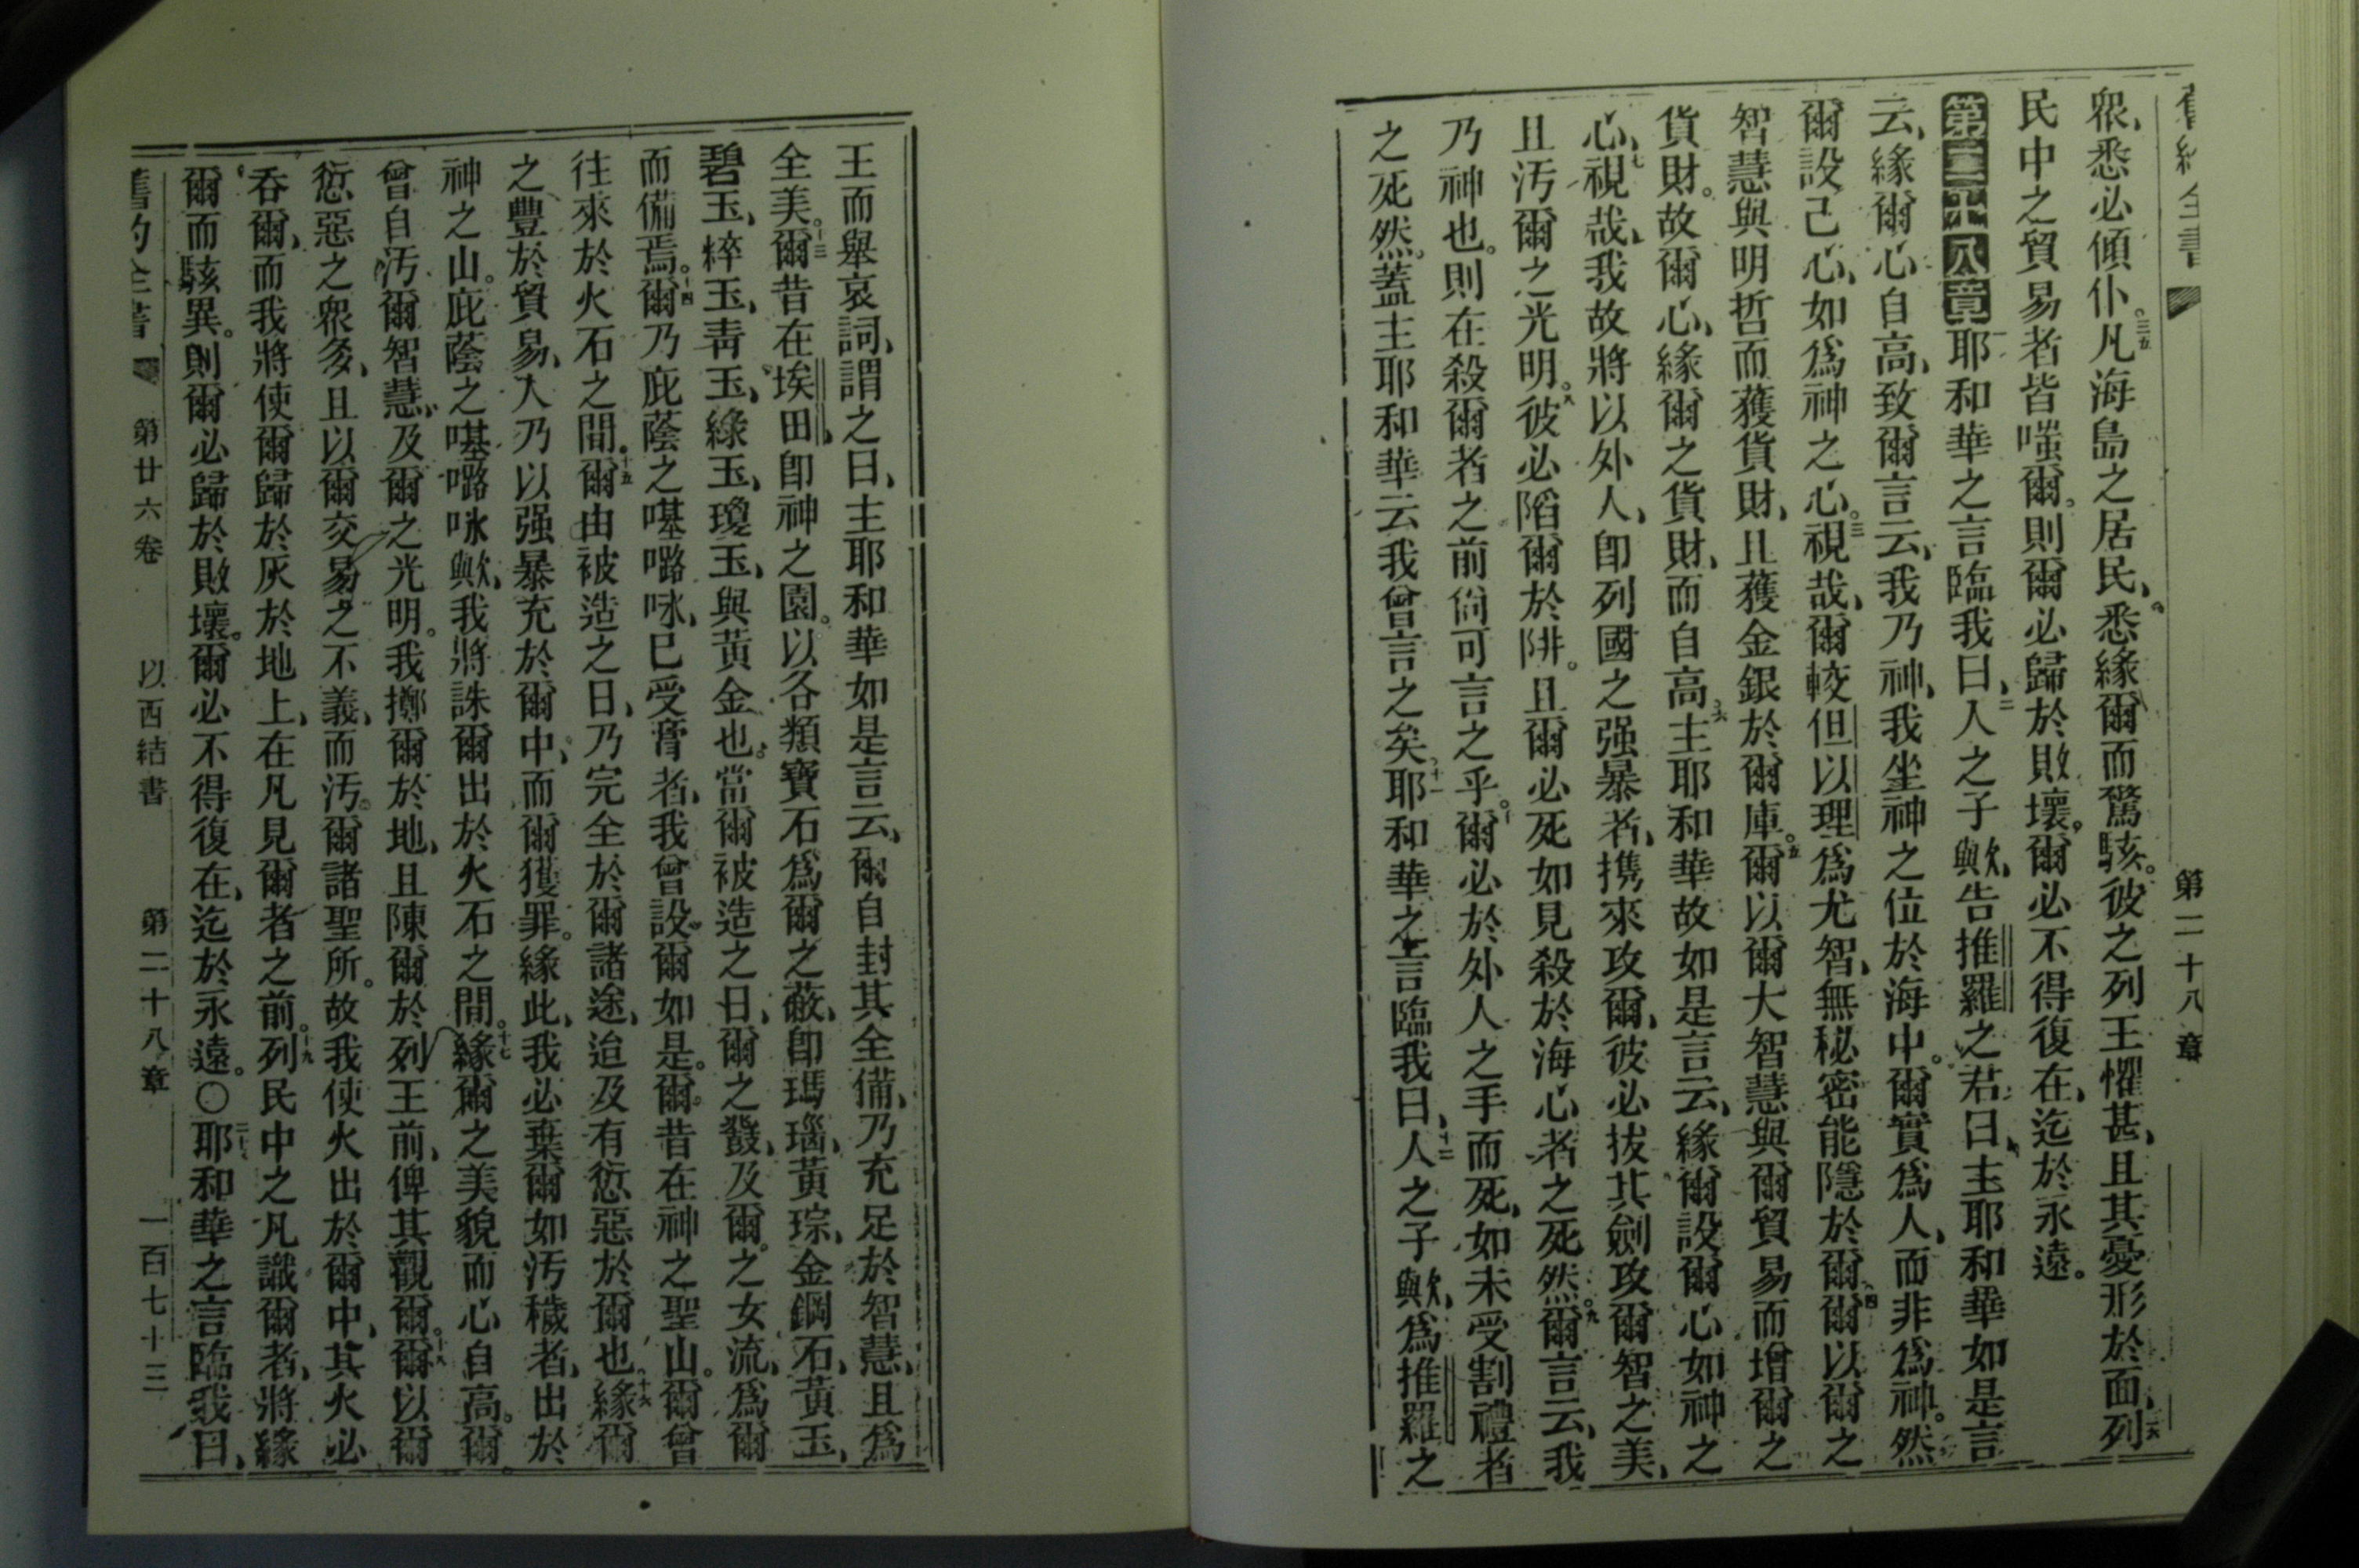 舊約全書 第二十八章
衆、悉必傾仆。三五凡海島之居民、悉緣爾而驚駭。彼之列王懼甚、且其憂形於面、三六列
民中之貿易者皆嗤爾。則爾必歸於敗壞。爾必不得復在、迄於永遠。
第二十八章耶和華之言臨我曰、二人之子歟、告推羅之君曰、主耶和華如是言
云、緣爾心自高、致爾言云、我乃神、我坐神之位於海中。爾實爲人、而非爲神。然
爾設己心、如爲神之心。三視哉、爾較但以理爲尤智、無秘密能隱於爾。四爾以爾之
智慧與明哲而獲貨財、且獲金銀於爾庫。五爾以爾大智慧與爾貿易而增爾之
貨財。故爾心、緣爾之貨財、而自高。六主耶和華故如是言云、緣爾設爾心如神之
心、七視哉、我故將以外人、卽列國之强暴者、携來攻爾、彼必拔其劍攻爾智之美、
且汚爾之光明。八彼必陷爾於阱。且爾必死如見殺於海心者之死然。九爾言云、我
乃神也。則在殺爾者之前尙可言之乎。十爾必於外人之手而死、如未受割禮者
之死然。蓋主耶和華云我曾言之矣。十一耶和華之言臨我曰、十二人之子歟、爲推羅之
王而舉哀詞、謂之曰、主耶和華如是言云、爾自封其全備、乃充足於智慧、且爲
全美。十三爾昔在埃田、卽神之園。以各類寶石爲爾之蔽、卽瑪瑙、黃琮、金鋼石、黃玉、
碧玉、綷玉、靑玉、綠玉、瓊玉、與黃金也。當爾被造之日、爾之鼗、及爾之女流、爲爾
而備焉。十四爾乃庇蔭之𠼻嚕咏、已受膏者、我曾設爾如是。爾昔在神之聖山。爾曾
往來於火石之間。十五爾由被造之日、乃完全於爾諸途、迨及有愆惡於爾也。十六緣爾
之豐於貿易、人乃以强暴充於爾中、而爾獲罪。緣此、我必棄爾如汚穢者、出於
神之山。庇蔭之𠼻嚕咏歟、我將誅爾出於火石之間。十七緣爾之美貌而心自高。爾
曾自汚爾智慧、及爾之光明。我擲爾於地、且陳爾於列王前、俾其觀爾。十八爾以爾
愆惡之衆多、且以爾交易之不義、而汚爾諸聖所。故我使火出於爾中、其火必
吞爾、而我將使爾歸於灰於地上、在凡見爾者之前。十九列民中之凡識爾者、將緣
爾而駭異。則爾必歸於敗壞。爾必不得復在、迄於永遠。〇二十耶和華之言臨我曰、
舊約全書 第廿六卷 以西結書 第二十八章 一百七十三